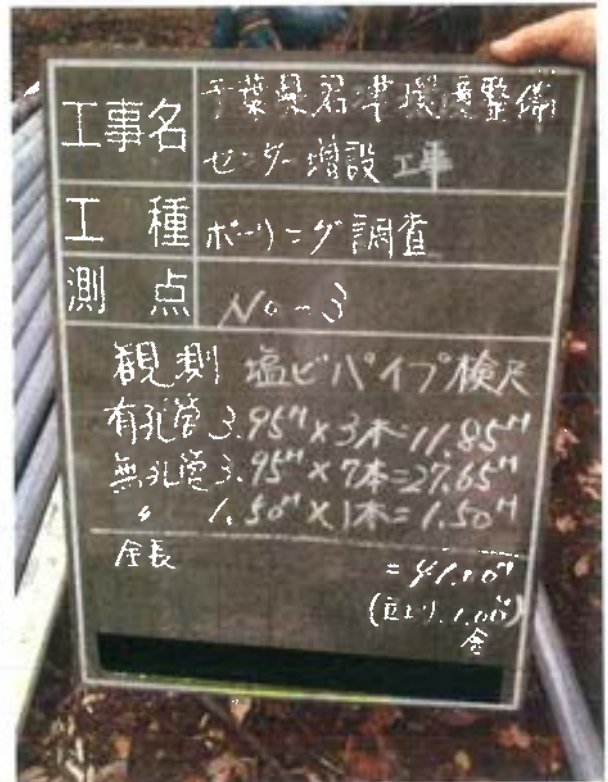 工事名 千葉県君津環境整備
センター増設工事
工種 ボーリング調査
測点 No-3
観測 塩ビパイプ検尺
有孔管 3.95M×3本=11.85M
無孔管 3.95M×7本=27.65M
〃 1.50M×1本=1.50M
全長 =41.00M
(立上り1.00M
含)